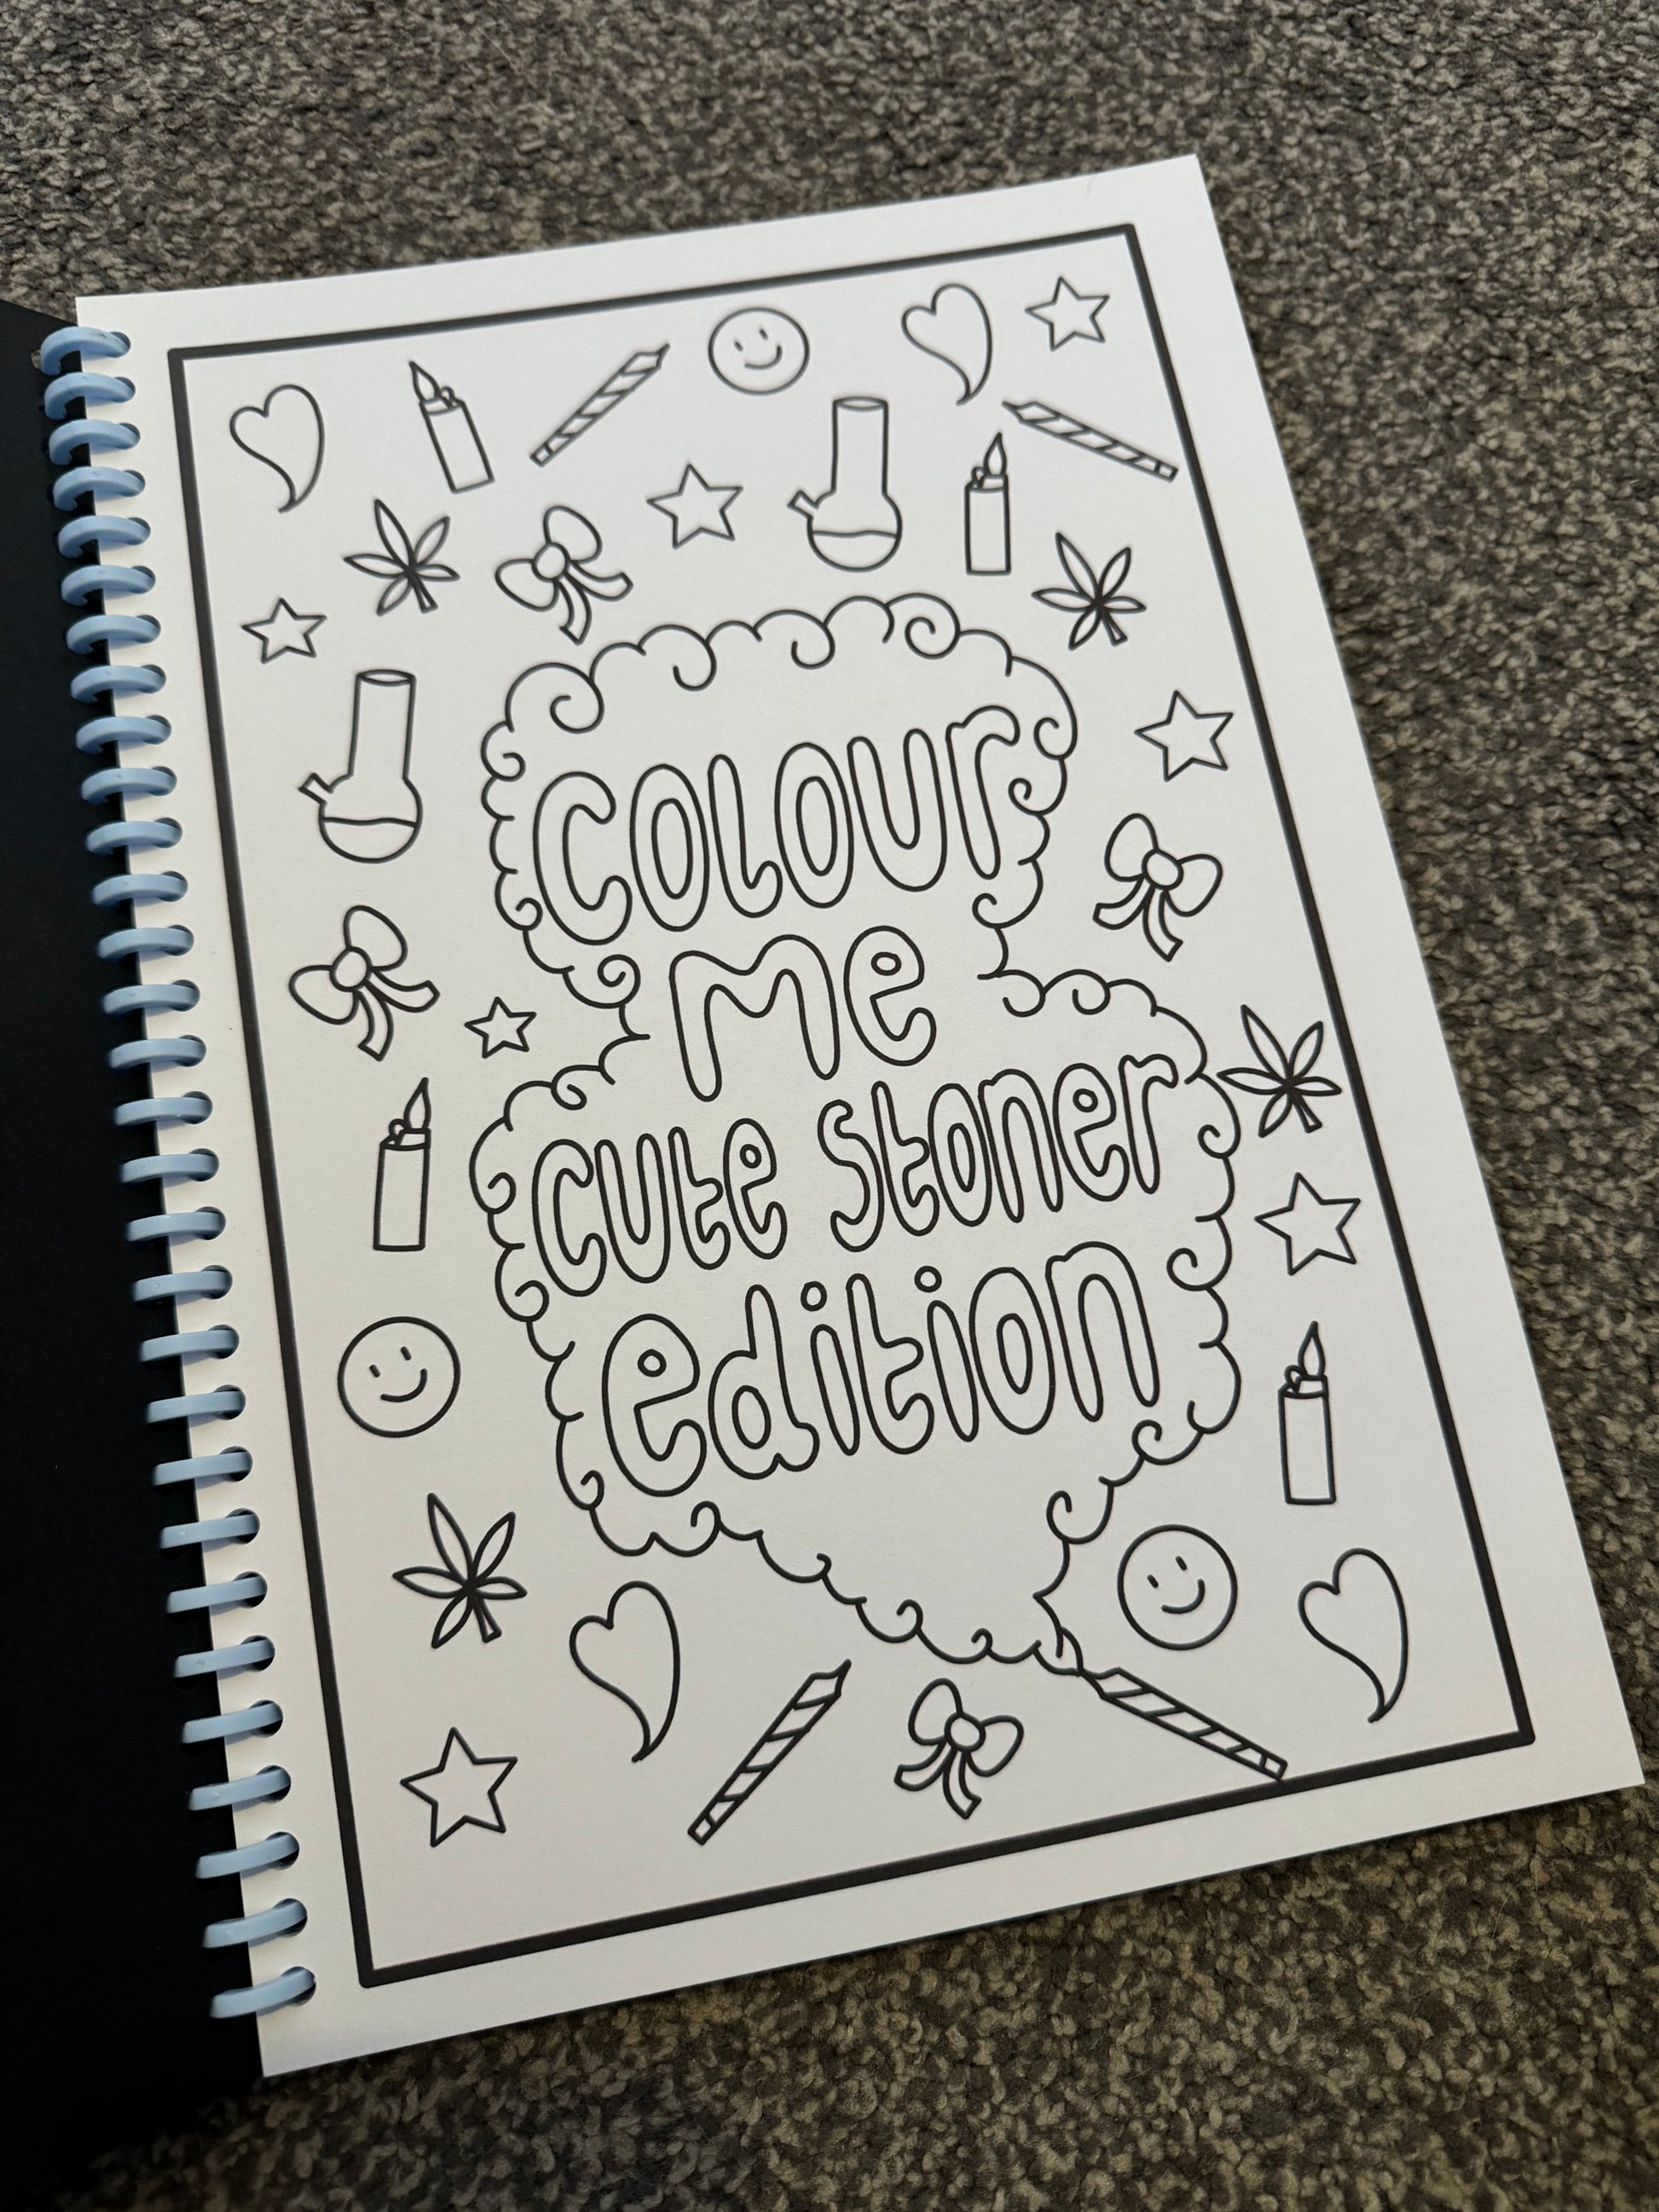 COLOUR
me
cute stoner
edition